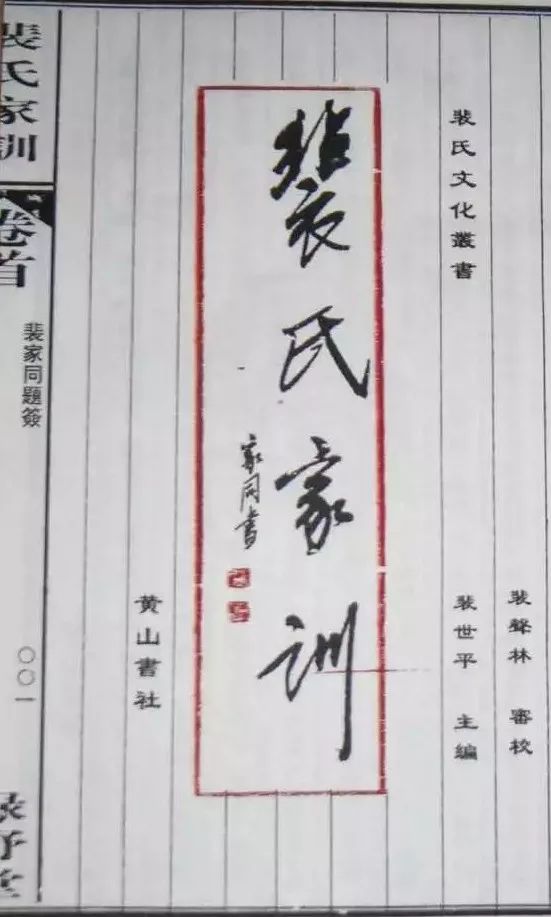 裴聲林 審校
裴氏文化叢書
裴世平 主編
裴氏家訓
家同書
黄山書社
裴氏家訓
卷首
裴家同題簽
〇〇一